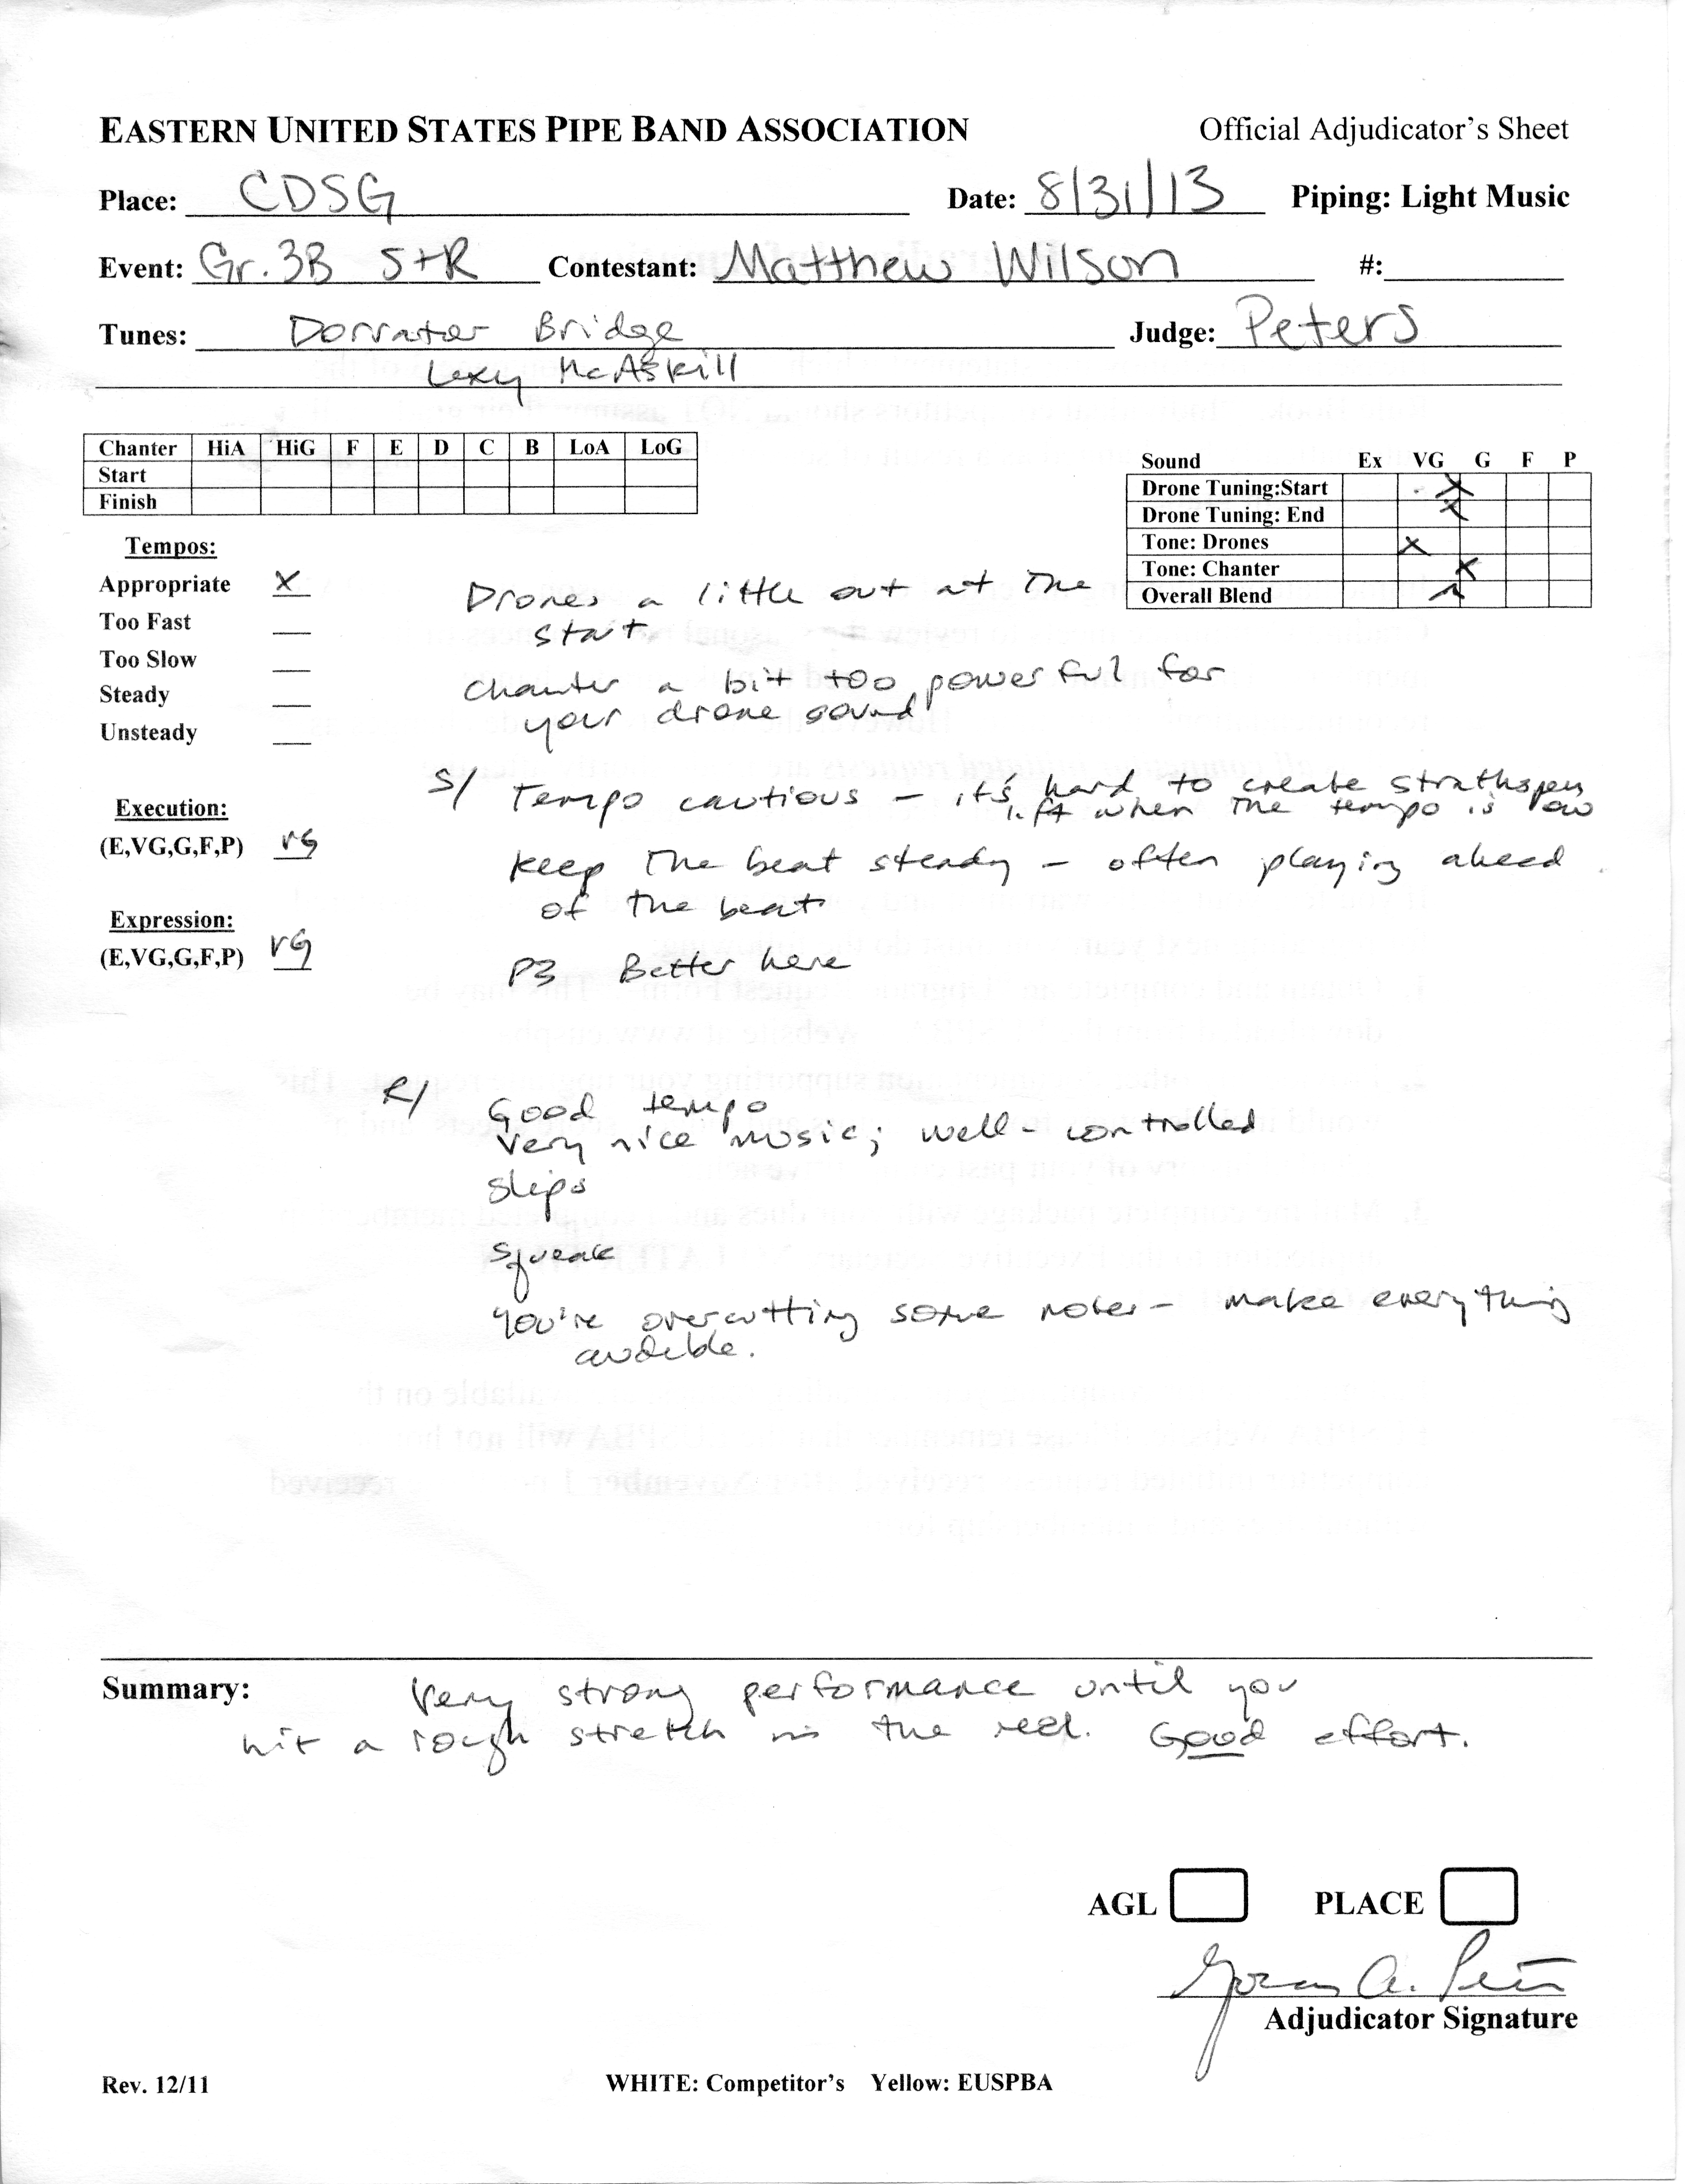 EASTERN UNITED STATES PIPE BAND ASSOCIATION Official Adjudicator's Sheet
Place: CDSG Date: 8/31/13 Piping: Light Music
Event: Gr. 3B S+R Contestant: Matthew Wilson #:
Tunes: Dorrator Bridge Judge: Peters
Lexy McAskill
Chanter HiA HiG F E D C B LoA LoG
Start
Finish
Sound Ex VG G F P
Drone Tuning:Start X
Drone Tuning: End X
Tone: Drones X
Tone: Chanter X
Overall Blend
Tempos:
Appropriate X
Too Fast
Too Slow
Steady
Unsteady
Execution:
(E,VG,G,F,P) VG
Expression:
(E,VG,G,F,P) VG
Drones a little out at the
start
chanter a bit too powerful for
your drone sound
S/ Tempo cautious – it's hard to create strathspey
lift when the tempo is low
keep the beat steady – often playing ahead
of the beat
P3 Better here
R/ Good tempo
Very nice music; well-controlled
slips
squeak
You're overcutting some notes – make everything
audible.
Summary: Very strong performance until you
hit a rough stretch in the reel. Good effort.
AGL PLACE
Adjudicator Signature
Rev. 12/11 WHITE: Competitor's Yellow: EUSPBA